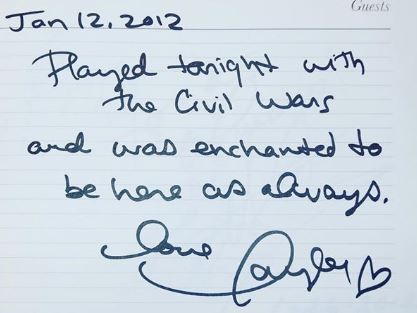 Guests
Jan 12, 2012
Played tonight with
the Civil Wars
and was enchanted to
be here as always.
love
Taylor